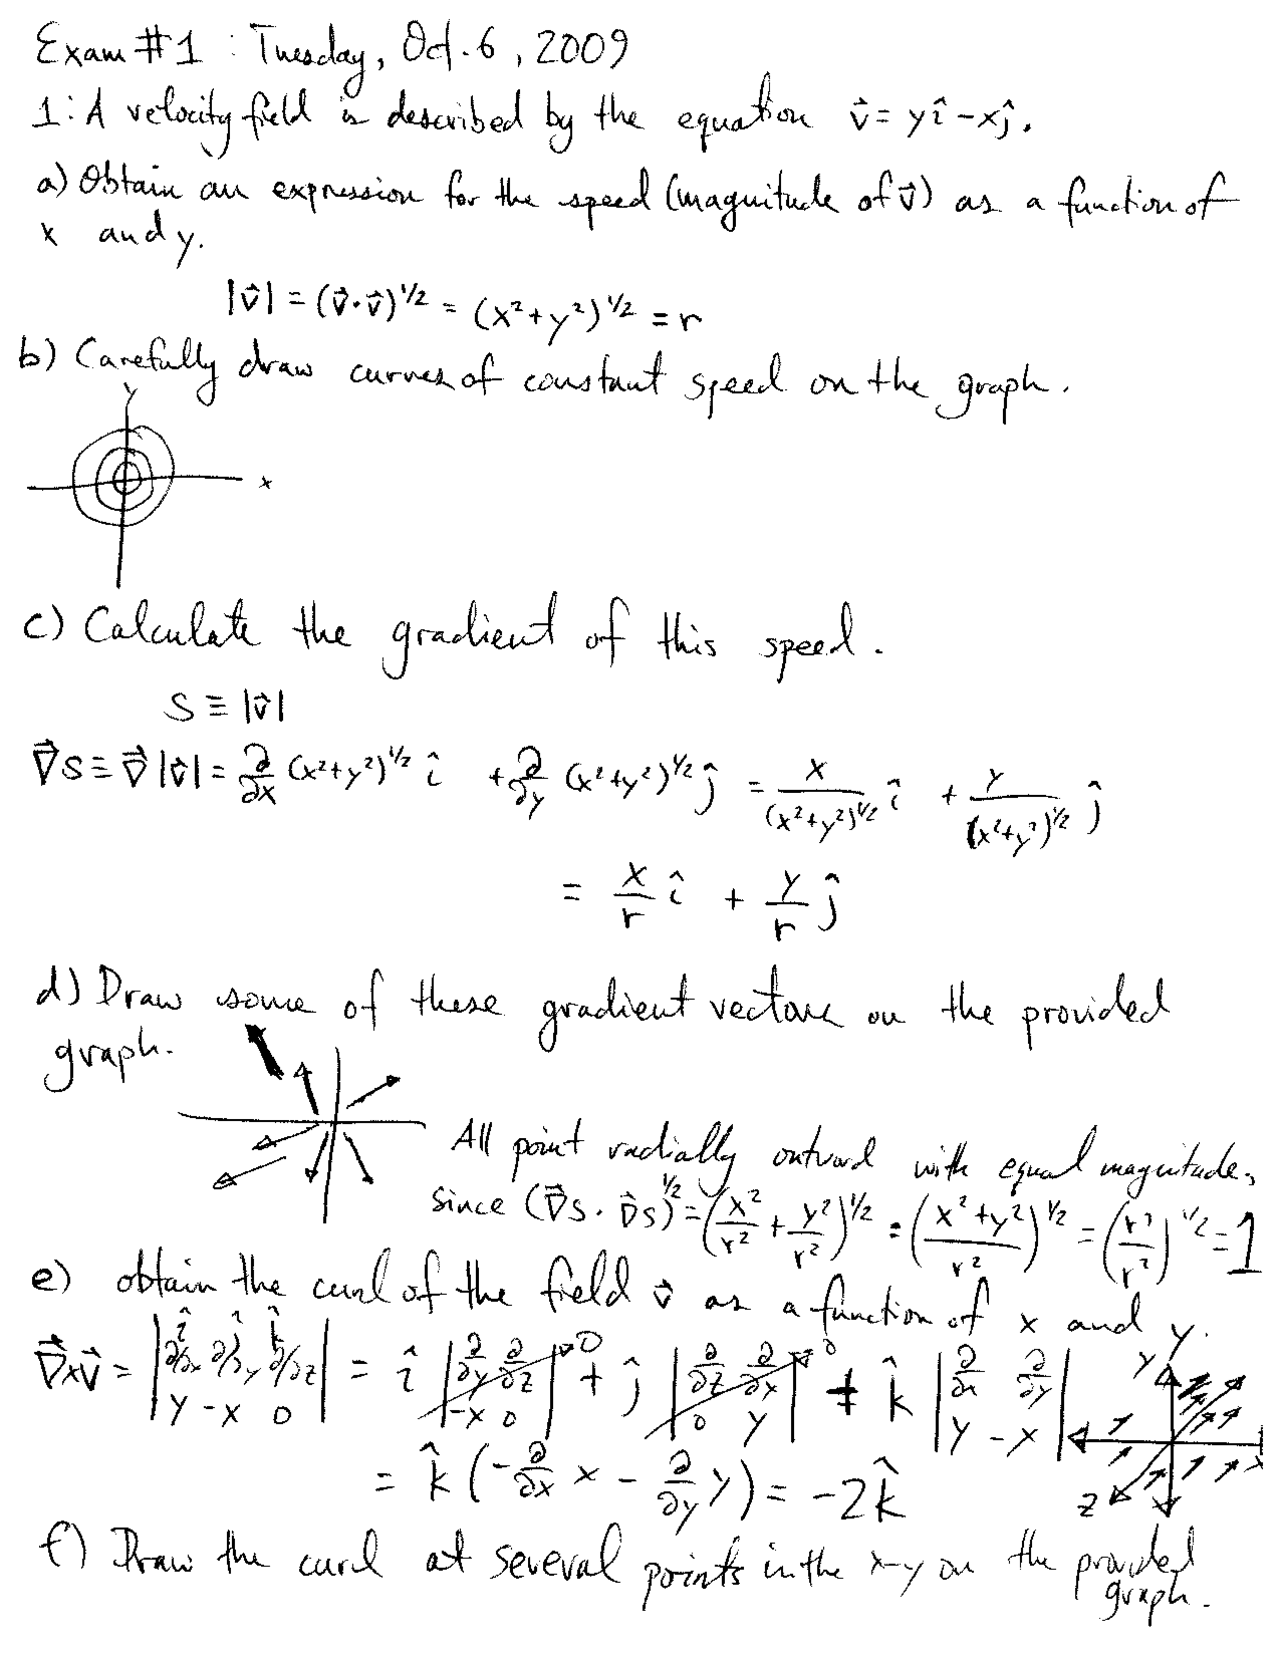 Exam #1 : Tuesday, Oct. 6, 2009
1: A velocity field is described by the equation v⃗ = yî - xĵ.
a) Obtain an expression for the speed (magnitude of v⃗) as a function of
x and y.
|v⃗| = (v⃗·v⃗)^1/2 = (x²+y²)^1/2 = r
b) Carefully draw curves of constant speed on the graph.
y
x
c) Calculate the gradient of this speed.
S ≡ |v⃗|
∇⃗S ≡ ∇⃗|v⃗| = ∂/∂x (x²+y²)^1/2 î + ∂/∂y (x²+y²)^1/2 ĵ = x/(x²+y²)^1/2 î + y/(x²+y²)^1/2 ĵ
= x/r î + y/r ĵ
d) Draw some of these gradient vectors on the provided
graph.
All point radially outward with equal magnitude,
since (∇⃗S · ∇⃗S)^1/2 = (x²/r² + y²/r²)^1/2 = ((x²+y²)/r²)^1/2 = (r²/r²)^1/2 = 1
e) obtain the curl of the field v⃗ as a function of x and y.
∇⃗×v⃗ = |î ĵ k̂; ∂/∂x ∂/∂y ∂/∂z; y -x 0| = î |∂/∂y ∂/∂z; -x 0| 0 + ĵ |∂/∂z ∂/∂x; 0 y| 0 + k̂ |∂/∂x ∂/∂y; y -x|
y
x
z
= k̂ (-∂/∂x x - ∂/∂y y) = -2k̂
f) Draw the curl at several points in the x-y on the provided
graph.